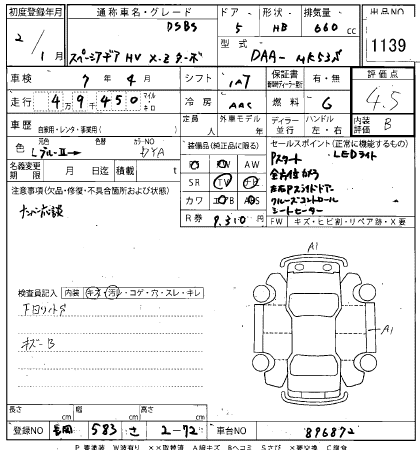 初度登録年月 通称車名・グレード ドア 形状 排気量 出品NO
2/1月 DSBS 5 HB 660 cc
スペーシアギア HV X-Z ターボ 型式 DAA-MK53S 1139
車検 7年4月 シフト IAT 保証書 有・無 評価点
走行 49450 マイル キロ 冷房 AAC 燃料 G 4.5
車歴 自家用・レンタ・事業用( ) 定員 人 外車モデル 年 ディーラー 並行 ハンドル 左・右 内装評価 B
色 Lブルー2→ 色替 カラーNO 装備品(純正品に限る) セールスポイント(正常に機能するもの)
名義変更期限 月 日迄 積載 t PS PW AW Pスタート LEDライト
注意事項(欠品・修復・不具合箇所および状態) SR TV ナビ 全方位カメラ
ナンバー応談 カワ エアB ABS 左右Pスライドドア
クルーズコントロール
R券 9,310 円 シートヒーター
FW キズ・ヒビ割・リペア跡・X要
A1
検査員記入 内装 キズ・汚レ・コゲ・穴・スレ・キレ
下回りサビ
A1
キズB
長さ cm 幅 cm 高さ cm
登録NO 長岡 583 さ 2-72 車台NO 896872
P要塗装 W波有り ××取替済 A線キズ Bヘコミ Sさび ×要交換 C腐食